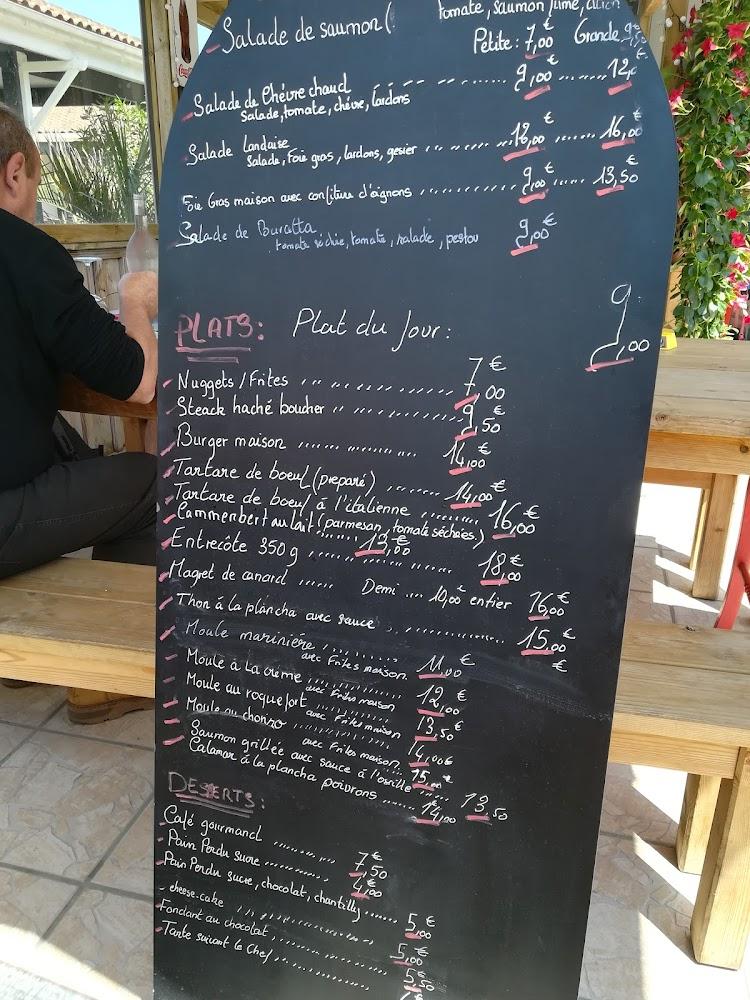 tomate, saumon fumé, citron
Salade de saumon (
Petite: 7,00 Grande 9,50€
Salade de Chévre chaud ...... 9,00€ ...... 12,€
Salade, tomate, chévre, lardons
Salade Landaise ...... 12,00€ ...... 16,00€
Salade, Foie gras, lardons, gesier
Foie Gras maison avec confiture d'oignons ...... 9,00€ ...... 13,50€
Salade de Buratta 9,00€
tomate séchée, tomate, salade, pestou
PLATS: Plat du Jour: 9,00
Nuggets / Frites ...... 7,00€
Steack haché boucher ...... 9,50€
Burger maison ...... 14,00€
Tartare de boeuf (preparé) ...... 14,00€
Tartare de boeuf à l'italienne ...... 16,00€
(parmesan, tomate séchées)
Cammenbert au lait ...... 13,00€
Entrecôte 350g ...... 18,00€
Magret de canard ...... Demi ... 10,00€ entier 16,00€
Thon à la plancha avec sauce ...... 15,00€
€
Moule marinière ...... 11,00€
avec Frites maison.
Moule à la crème ...... 12,00€
avec Frites maison
Moule au roquefort ...... 13,50€
avec Frites maison
Moule au chorizo ...... 14,00€
avec Frites maison.
Saumon grillée avec sauce à l'oseille ...... 15,00€
Calamar à la plancha poivrons ...... 14,00 13,50
DESERTS:
Café gourmand ...... 7,50€
Pain Perdu sucre ...... 4,00€
Pain Perdu sucre, chocolat, chantilly ...... 5,00€
cheese-cake ...... 5,00€
Fondant au chocolat ...... 5,50€
Tarte suivant le Chef ......